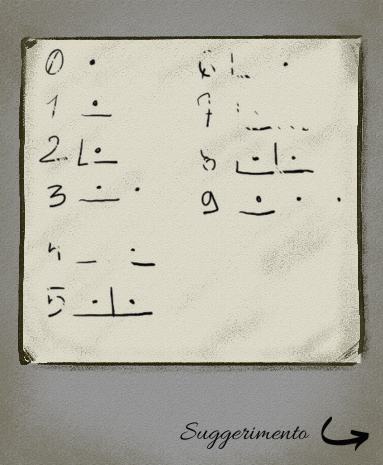 0
1
2
3
4
5
6
7
8
9
Suggerimento